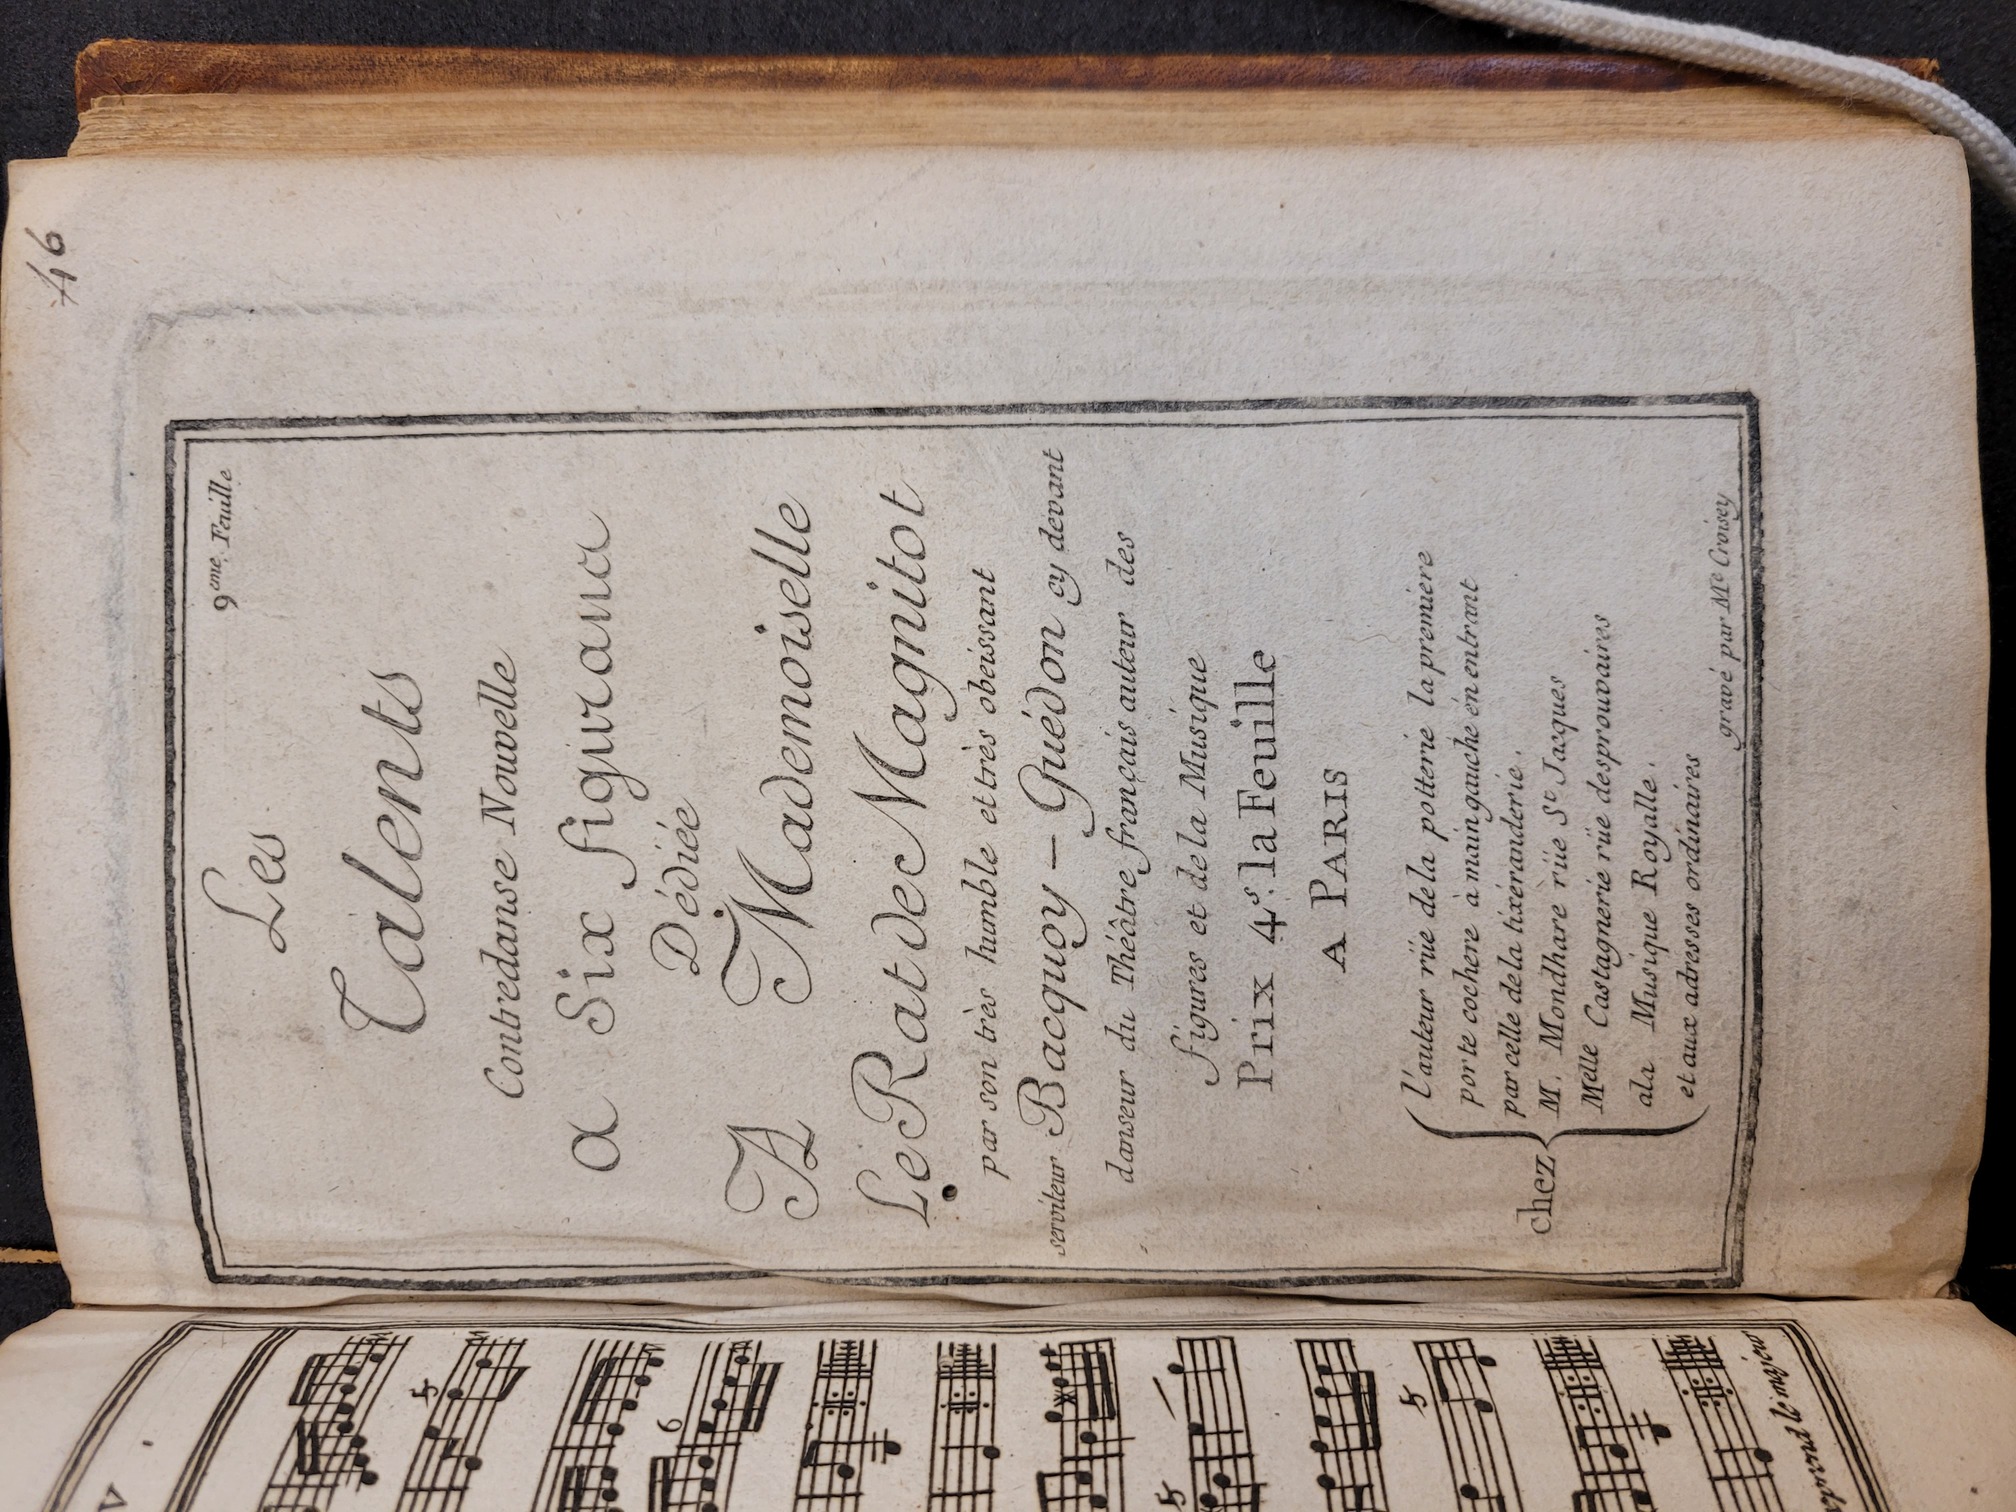 46
9eme. Feuille
Les
Talents
Contredanse Nouvelle
a Six figurans
Dédiée
A Mademoiselle
Le Rat de Magnitot
par son très humble et très obeissant
serviteur Bacquoy – Guédon cy devant
danseur du Théâtre français auteur des
figures et de la Musique
Prix 4.s la Feuille
A PARIS
chez
L'auteur rüe dela potterie la premiere
porte cochere à main gauche en entrant
par celle de la tixéranderie.
M. Mondhare rüe St. Jacques
Melle Castagnerie rüe des prouvaires
ala Musique Royalle.
et aux adresses ordinaires
gravé par Me. Croisey
5
6
5
5
le majeur